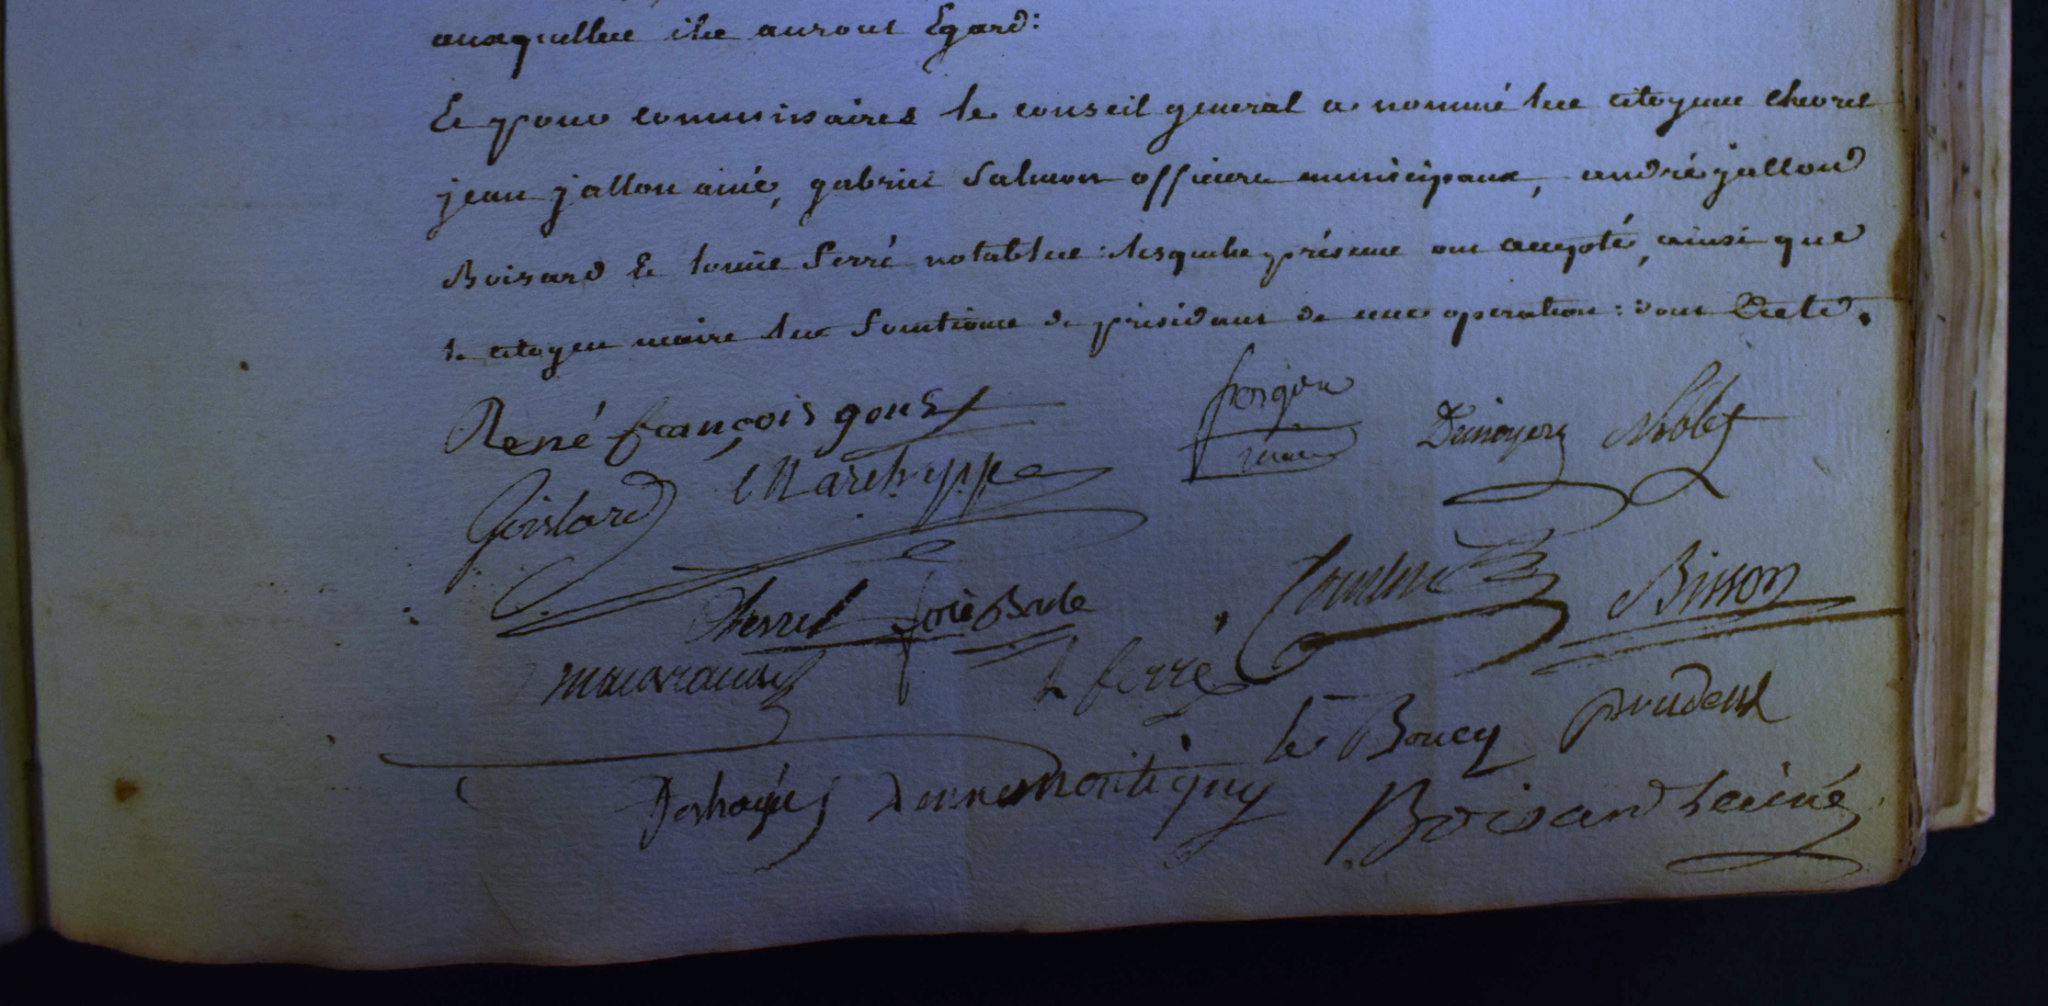 auxquelles ils auront Egard:
Et pour commissaires le conseil general a nommé les citoyens chevrel
jean jallon ainé, gabriel Salmon officiers municipaux, andré jallon
Boisard et louis Serré notables: lesquels présens ont accepté, ainsi que
le citoyen maire les fonctions de président de cette operation: dont acte.
René françois
Noblet
Gislard
Chevrel
Bisson
l ferré
le Boucq prudent
Deshayes montigny
Boisard l'ainé